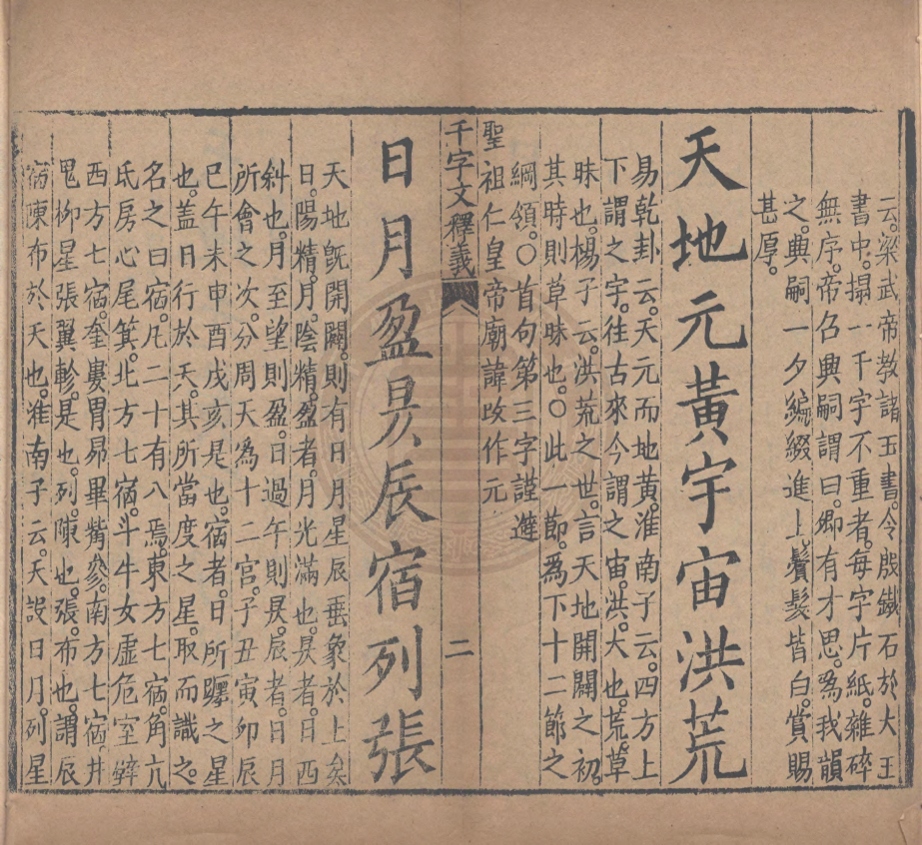 云。梁武帝教諸王書。令殷鐵石於大王
書中。搨一千字不重者。每字片紙。雜碎
無序。帝召興嗣謂曰。卿有才思。爲我韻
之。興嗣一夕編綴進上。鬢髮皆白。賞賜
甚厚。
天地元黃宇宙洪荒
易乾卦云。天元而地黃。淮南子云。四方上
下謂之宇。往古來今謂之宙。洪。大也。荒。草
昧也。楊子云。洪荒之世。言天地開闢之初。
其時則草昧也。○此一節。爲下十二節之
綱領。○首句第三字謹避
聖祖仁皇帝廟諱改作元
千字文釋義
二
日月盈昃辰宿列張
天地旣開闢。則有日月星辰垂象於上矣
日。陽精。月。陰精。盈者。月光滿也。昃者。日西
斜也。月至望則盈。日過午則昃。辰者。日月
所會之次。分周天爲十二宮。子丑寅卯辰
巳午未申酉戌亥是也。宿者。日所躔之星
也。蓋日行於天。其所當度之星。取而識之。
名之曰宿。凡二十有八焉。東方七宿。角亢
氐房心尾箕。北方七宿。斗牛女虛危室壁
西方七宿。奎婁胃昴畢觜參。南方七宿。井
鬼柳星張翼軫。是也。列。陳也。張。布也。謂辰
宿陳布於天也。淮南子云。天設日月。列星